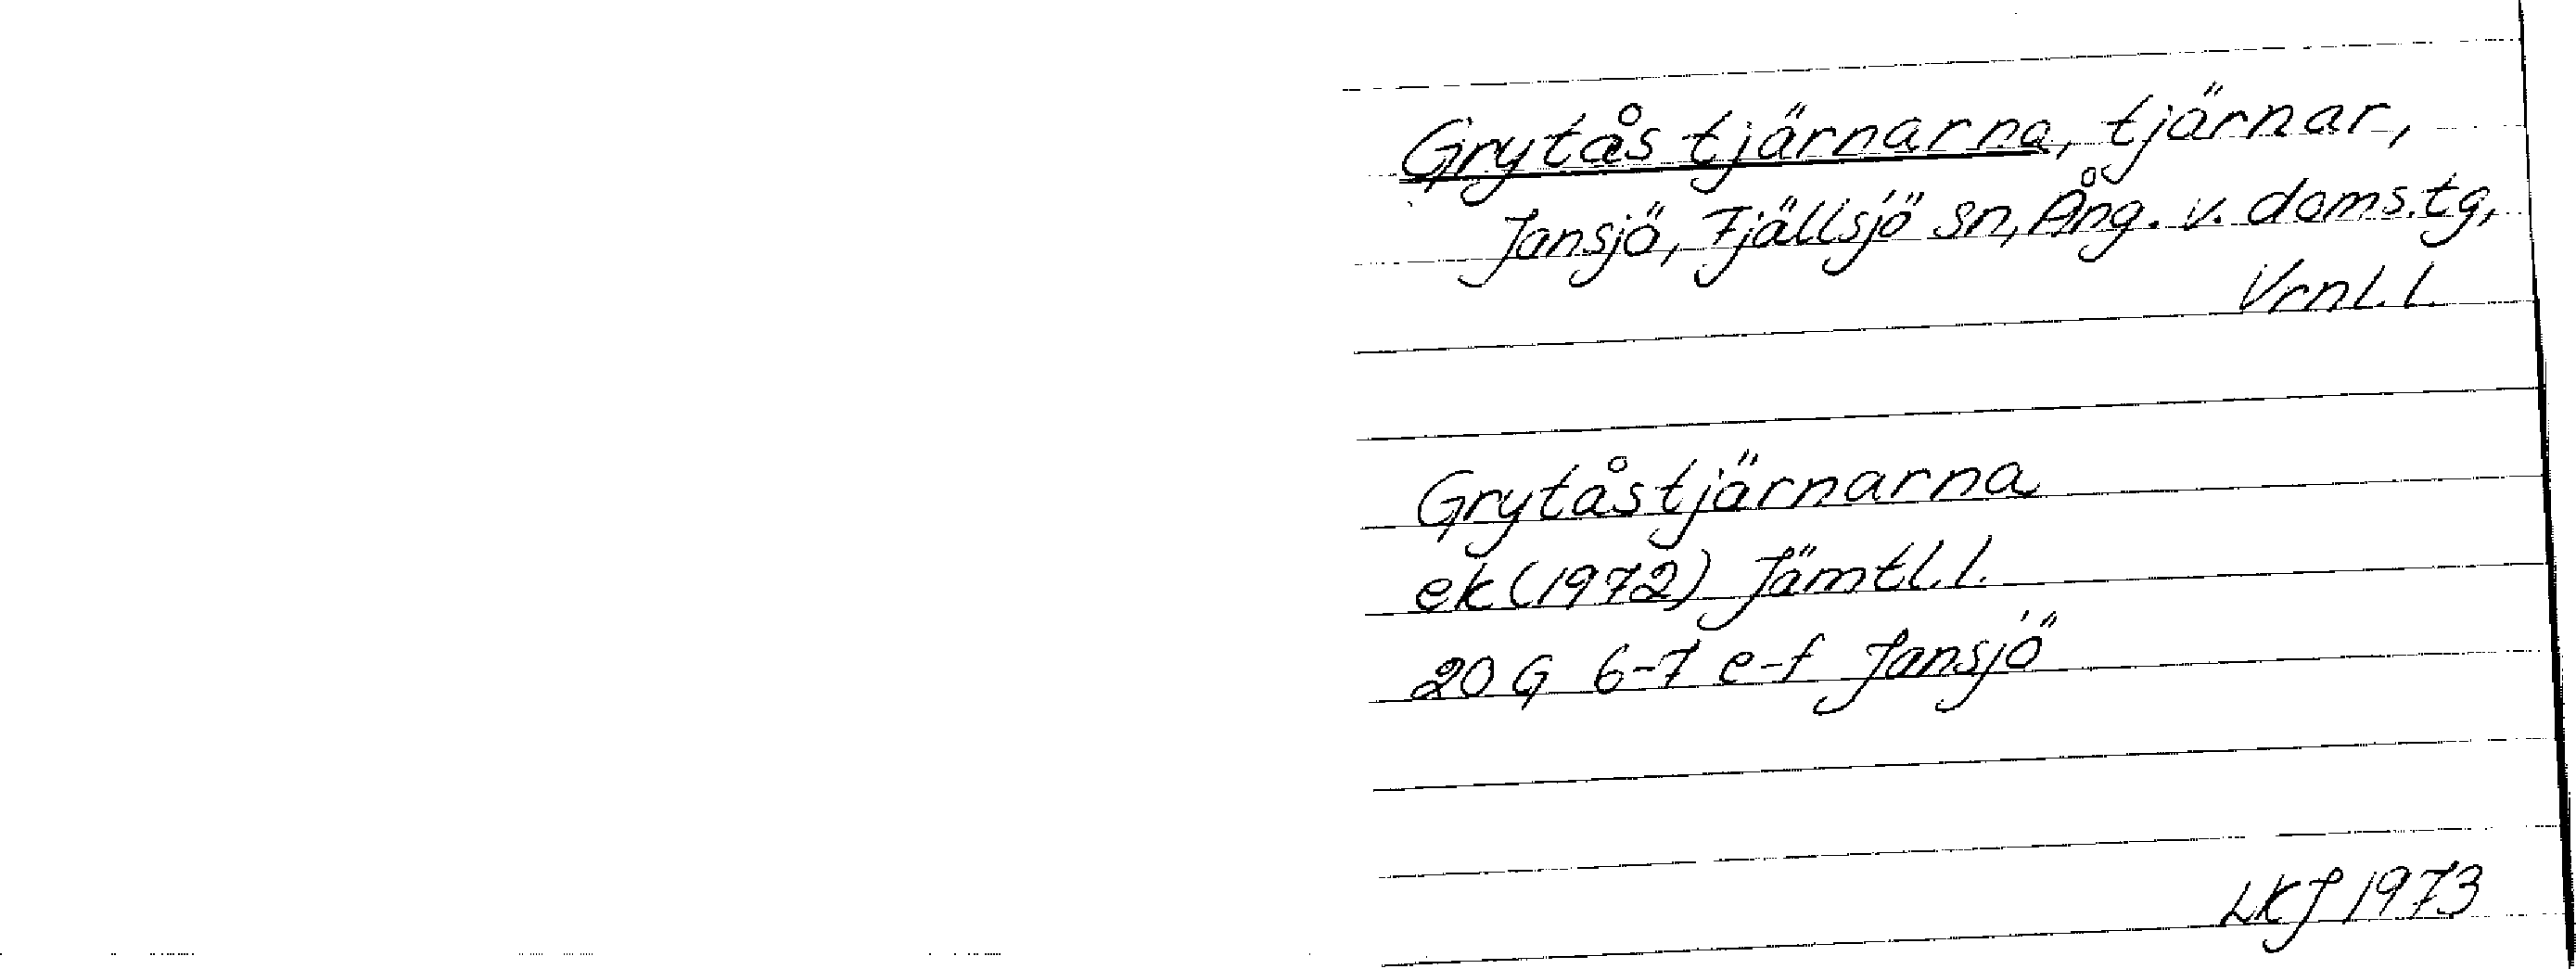 Grytåstjärnarna, tjärnar,
Jansjö, Fjällsjö sn, Ång. v. doms.tg,
Vrnl. l.
Grytåstjärnarna
ek (1972) Jämtl. l.
20 G 6-7 e-f Jansjö
LKJ 1973